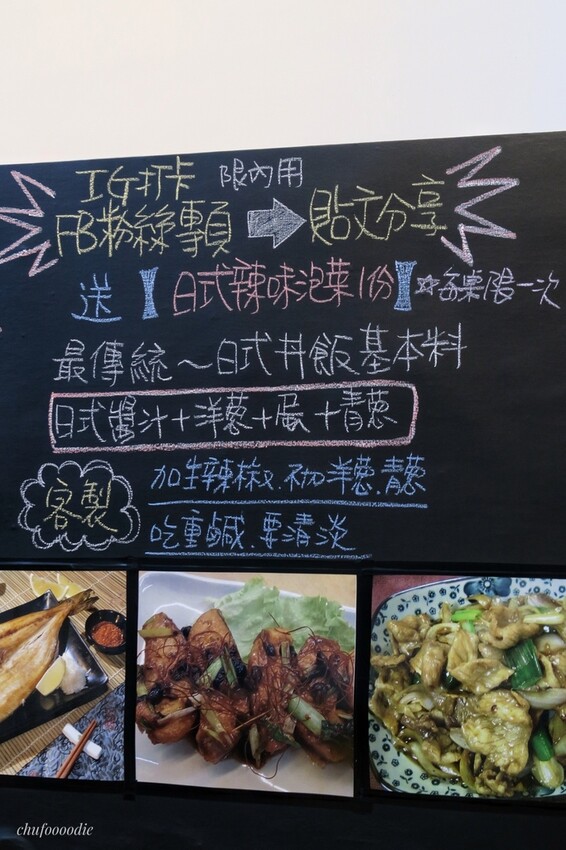 IG打卡 限內用
FB粉絲專頁 貼文分享
送【日式辣味泡菜1份】☆每桌限一次
最傳統～日式丼飯基本料
日式醬汁+洋蔥+蛋+青蔥
客製
加生辣椒.不加洋蔥.青蔥
吃重鹹.要清淡
chufoooodie